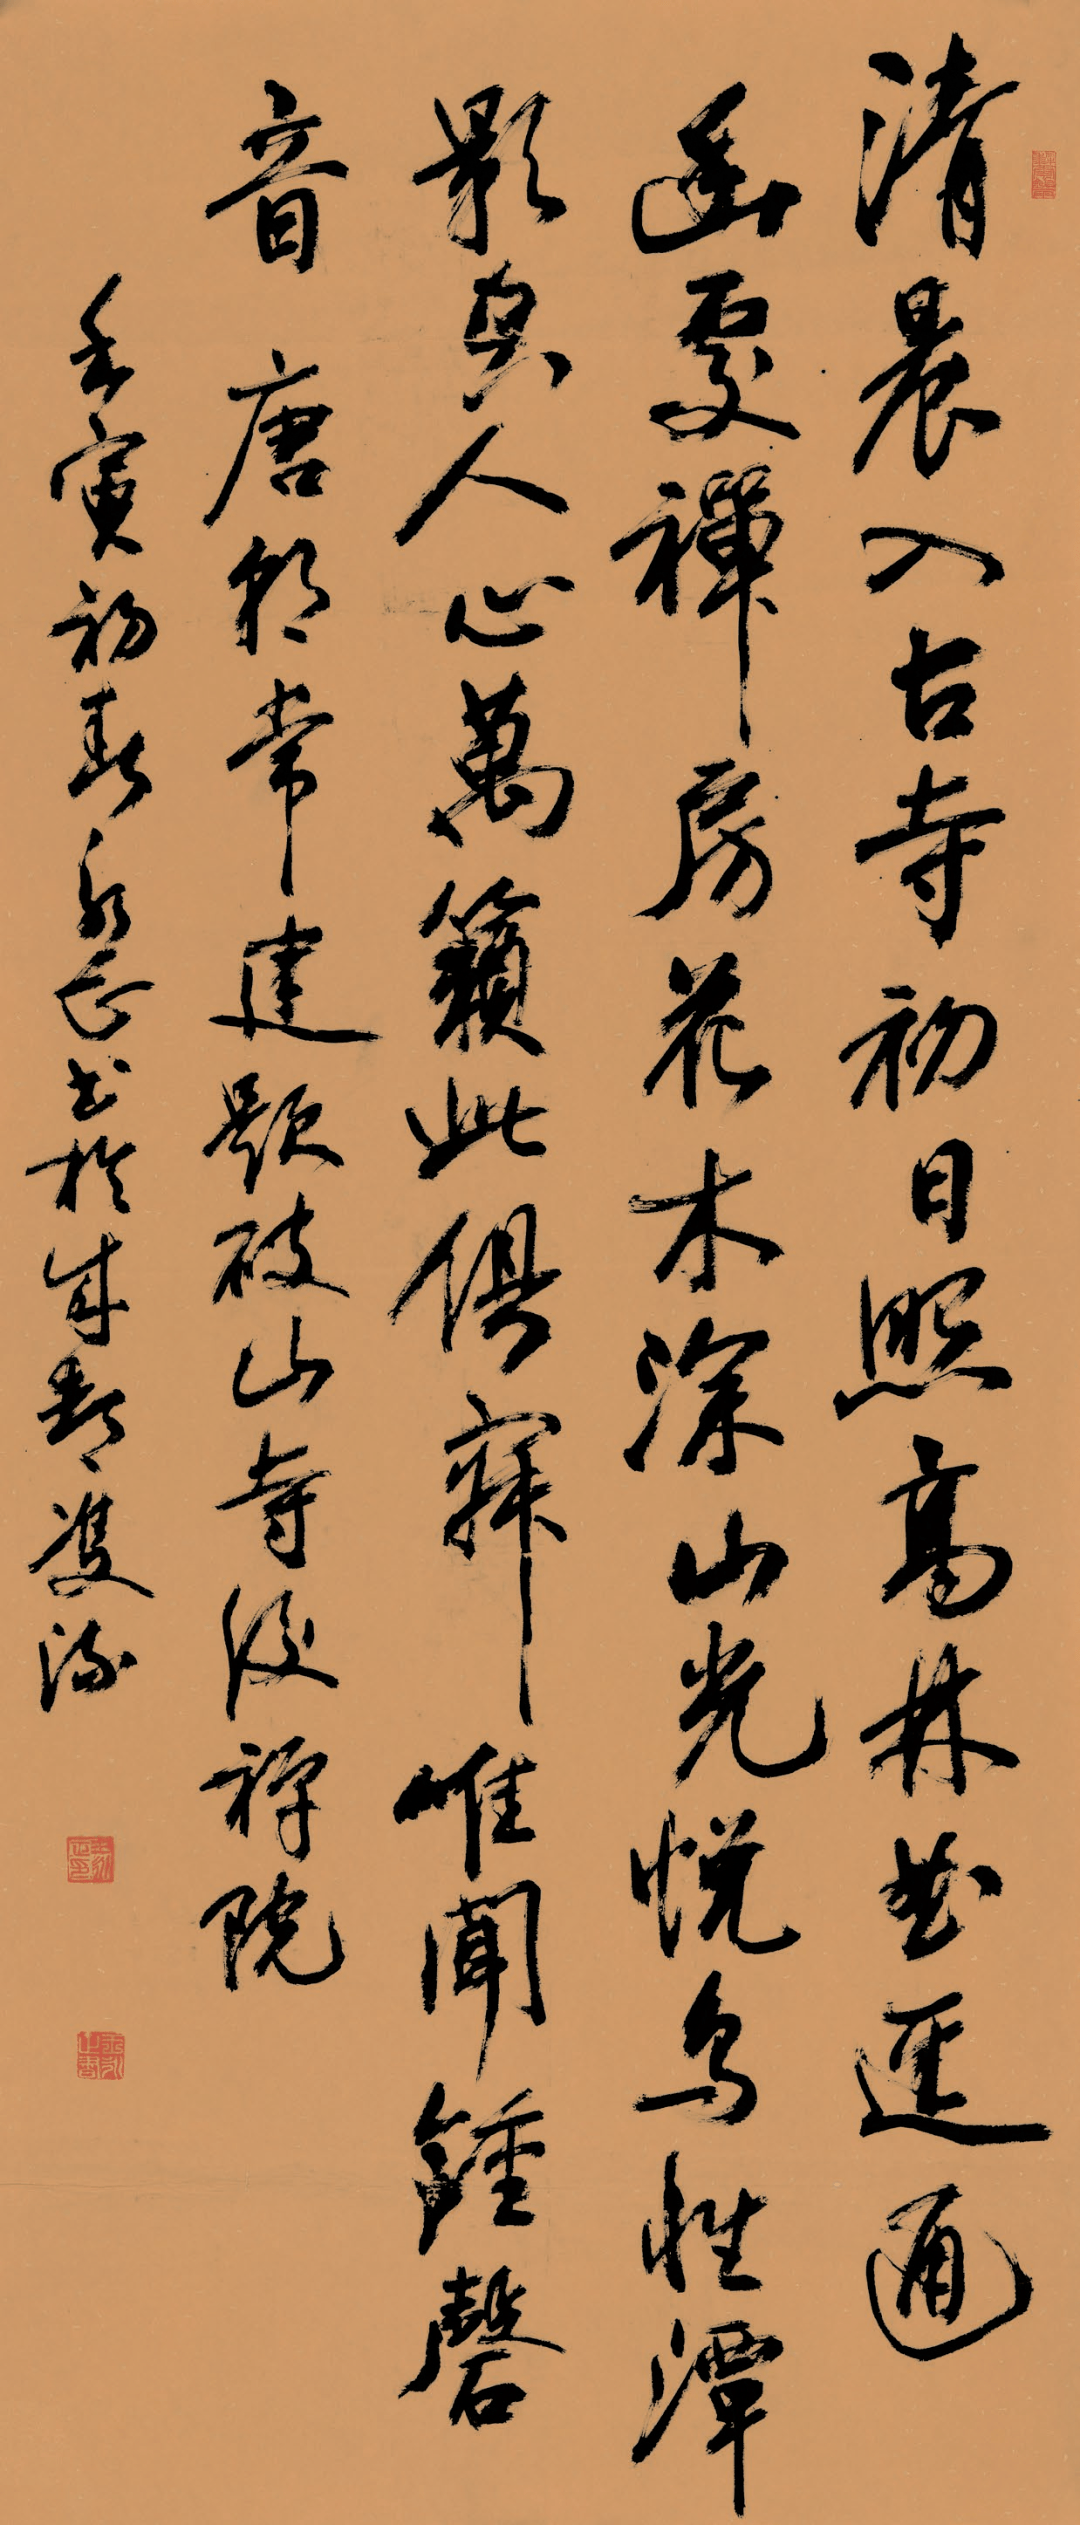 清晨入古寺初日照高林曲逕通
幽處禪房花木深山光悅鳥性潭
影空人心萬籟此俱寂唯聞鍾磬
音 唐朝常建題破山寺後禪院
壬寅初春永正書於成都雙流